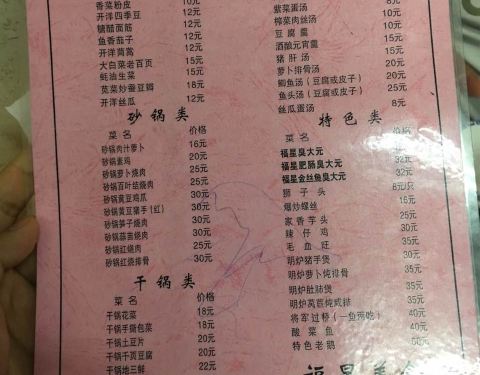 香菜粉皮 10元
开洋四季豆 12元
糖醋面筋 12元
鱼香茄子 12元
开洋茼蒿 15元
大白菜老百页 15元
蚝油生菜 15元
苋菜炒蚕豆姆 18元
开洋丝瓜 12元
砂锅类
菜名 价格
砂锅肉汁萝卜 16元
砂锅素鸡 20元
砂锅萝卜烧肉 25元
砂锅百叶结烧肉 25元
砂锅黄豆鸡爪 30元
砂锅黄豆猪手(红) 30元
砂锅笋子烧肉 30元
砂锅蒜苗烧肉 25元
砂锅红烧肉 30元
砂锅红烧排骨 30元
干锅类
菜名 价格
干锅花菜 18元
干锅手撕包菜 18元
干锅土豆片 20元
干锅千页豆腐 20元
干锅地三鲜 22元
紫菜蛋汤
榨菜肉丝汤 10元
豆腐羹 10元
酒酿元宵羹 15元
猪肝汤 15元
萝卜排骨汤
鲫鱼汤(豆腐或皮子)
鱼头汤(豆腐或皮子) 25元
丝瓜蛋汤 8元
特色类
菜名 价格
福星臭大元 32元
福星肥肠臭大元 32元
福星金丝鱼臭大元
狮子头 8元/只
爆炒螺丝
家香芋头 25元
辣仔鸡 25元
毛血旺 30元
明炉猪手煲 30元
明炉萝卜炖排骨 35元
明炉肚肺煲 35元
明炉莴苣炖咸排 35元
将军过桥(一鱼两吃) 40元
酸菜鱼 35元
特色老鹅 50元
福星美食